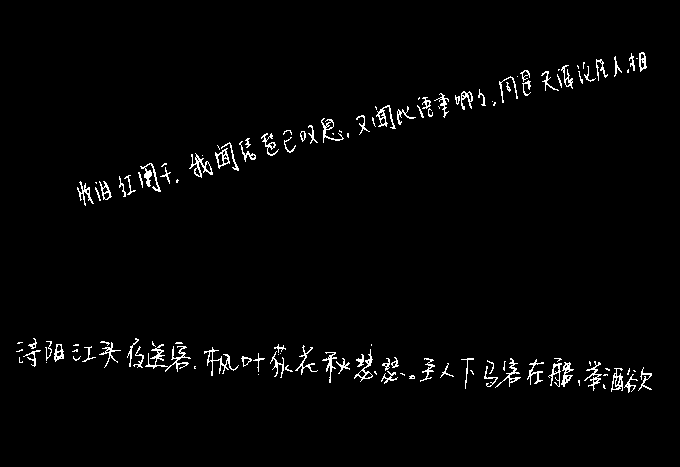 妆泪红阑干,我闻琵琶已叹息,又闻此语重唧唧,同是天涯沦落人,相
浔阳江头夜送客,枫叶荻花秋瑟瑟。主人下马客在船,举酒欲